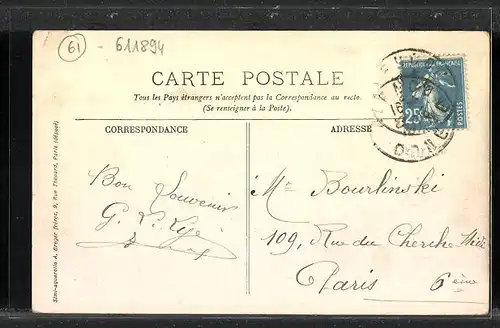 61 - 611894
CARTE POSTALE
Tous les Pays étrangers n'acceptent pas la Correspondance au recto.
(Se renseigner à la Poste).
CORRESPONDANCE
ADRESSE
RÉPUBLIQUE FRANÇAISE
25
POSTES
ORNE
Bon Souvenir
G.
Mr Bourlinski
109, Rue du Cherche Midi
Paris 6ème
Simi-aquarelle A. Breger frères, 9, Rue Thénard, Paris (déposé)